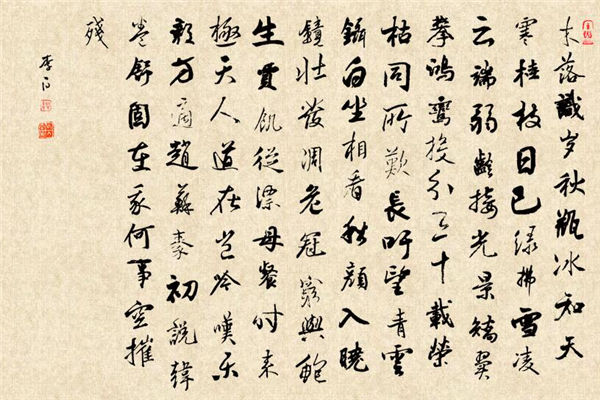 木落識岁秋瓶冰知天
寒桂枝日已绿拂雪凌
云端弱齡接光景矯翼
攀鴻鸞投分三十載榮
枯同所歎長吁望青雲
鑷白坐相看秋顏入曉
鏡壯發凋危冠窮與鮑
生賈飢從漂母餐时来
極天人道在岂吟嘆乐
毅方適趙蘇秦初說韓
卷舒固在我何事空摧
殘
李白